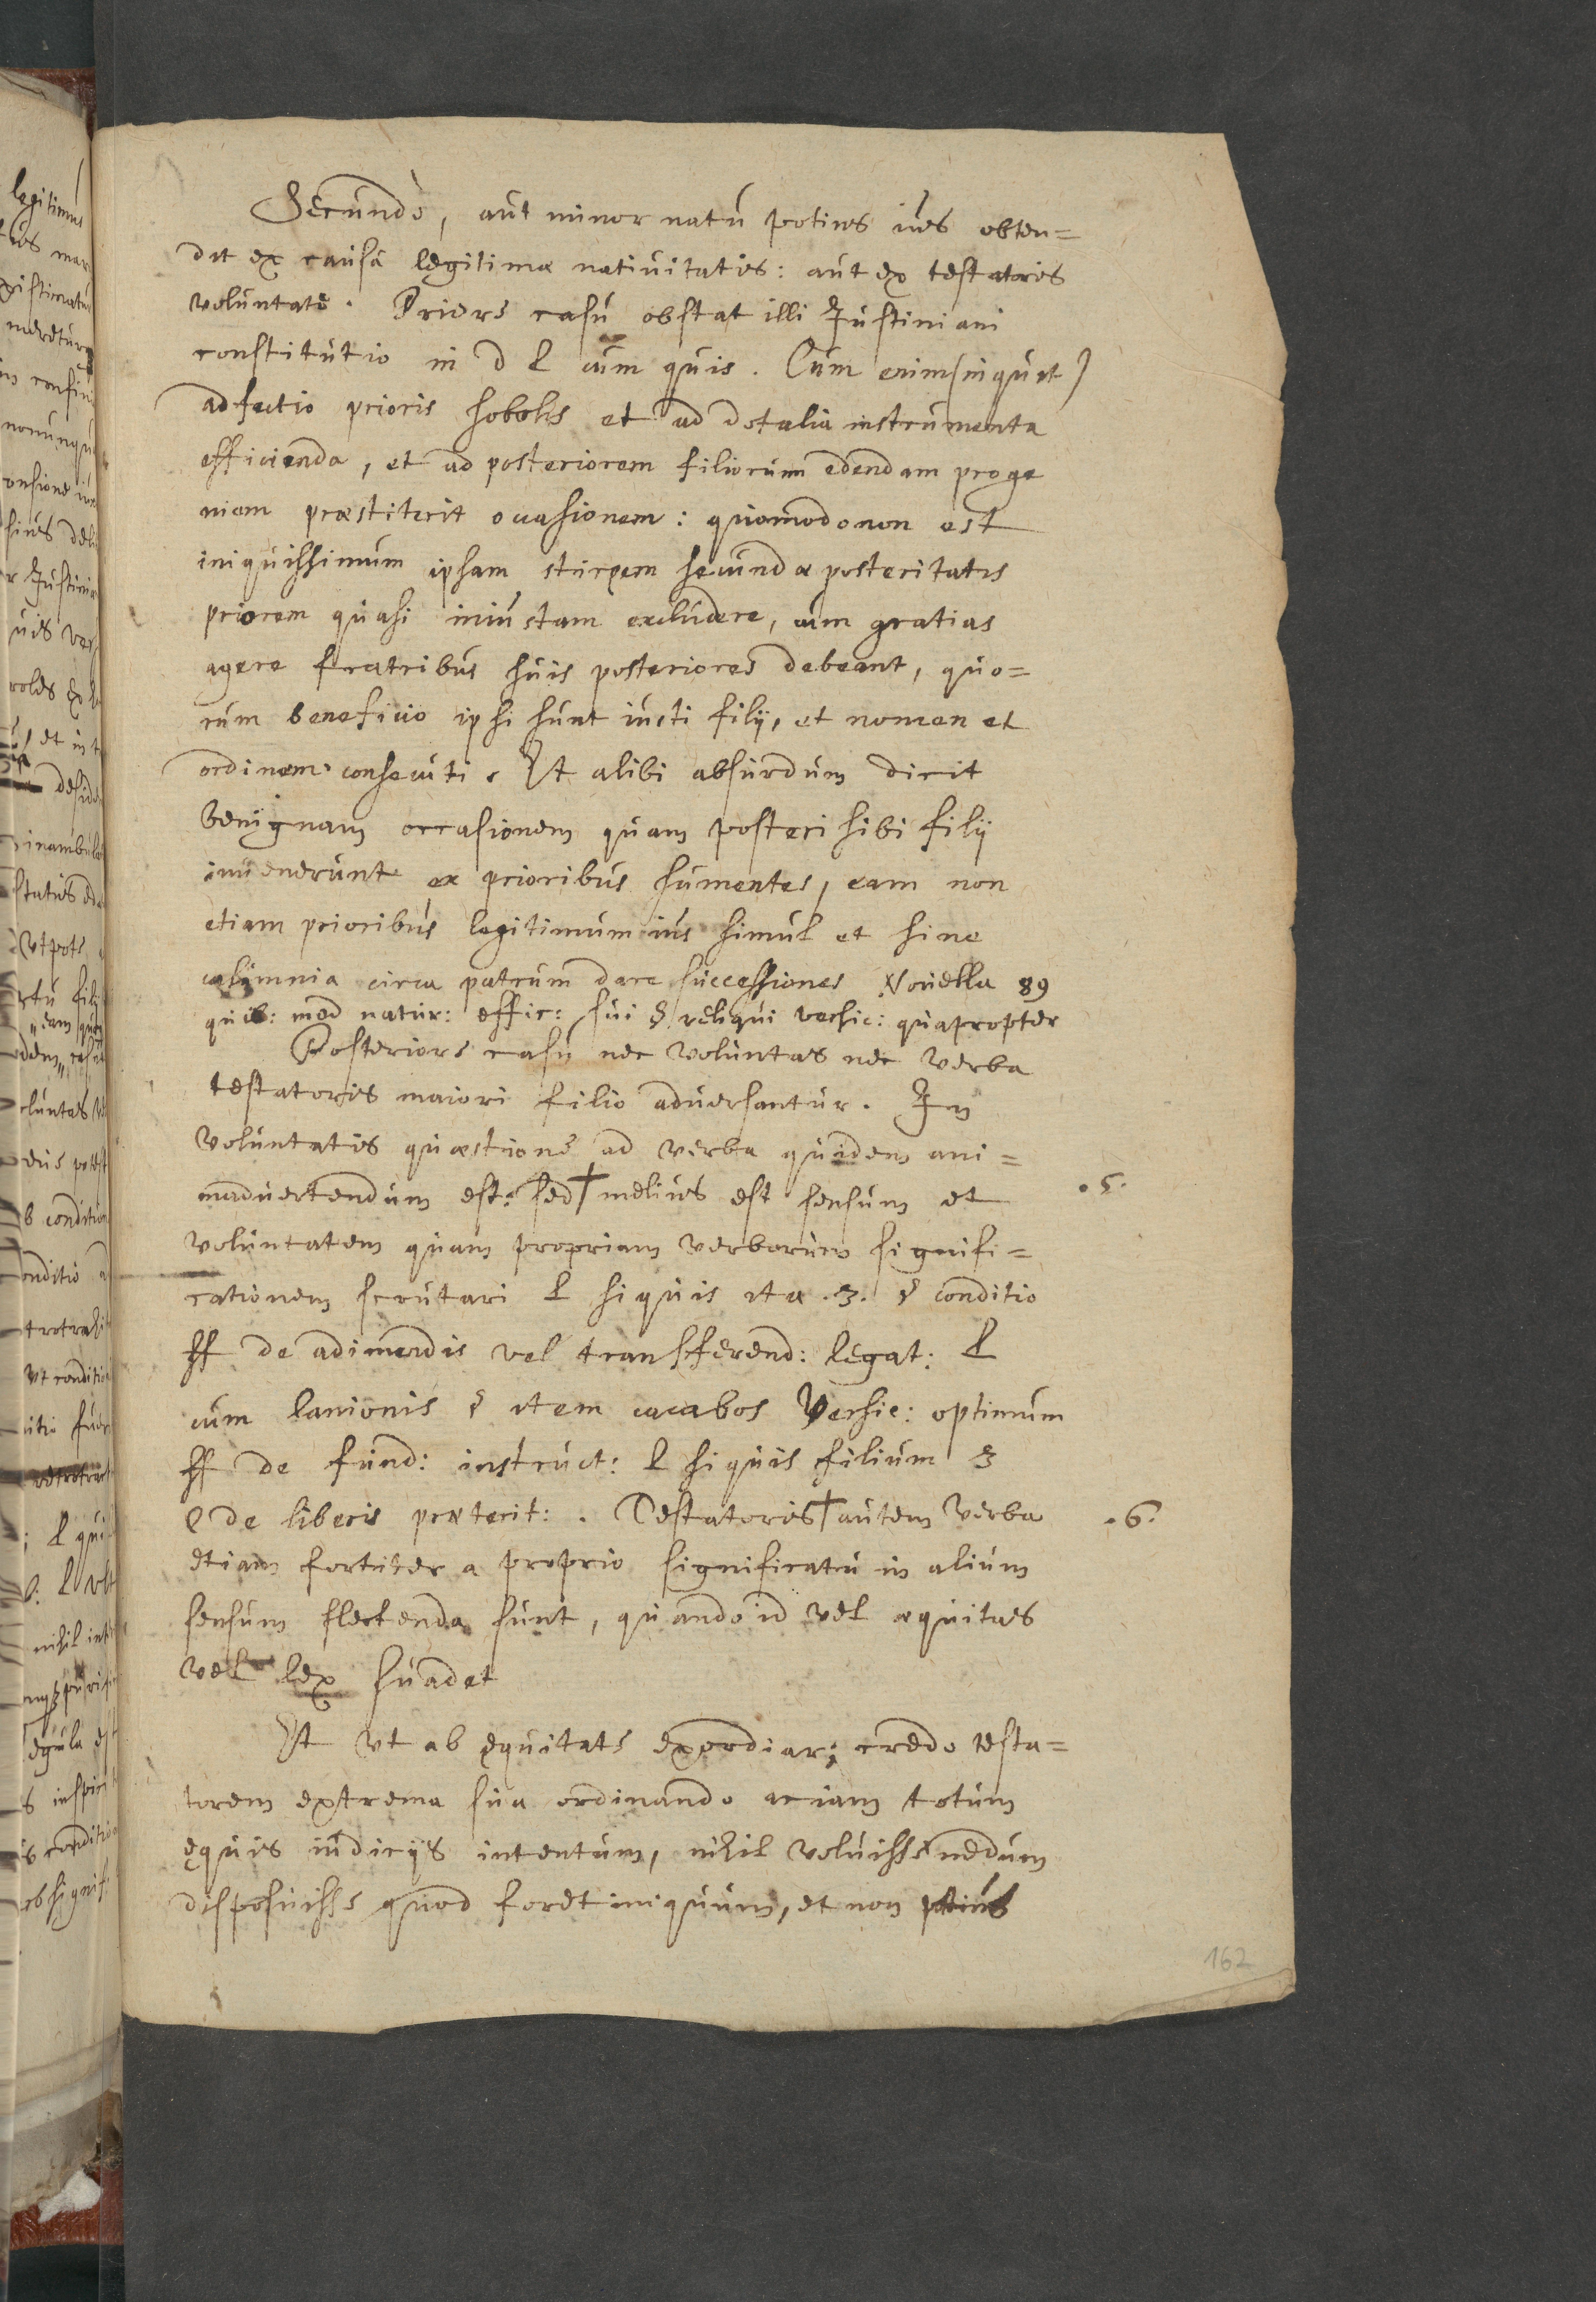 Secundò, aut minor natu potius ius obten=
dit ex causa legitimæ natiuitatis: aut ex testatoris
voluntate. Priore casu obstat illi Justiniani
constitutio in d l cum quis. Cum enim (inquit)
adfectio prioris sobolis et ad dotalia instrumenta
efficienda, et ad posteriorem filiorum edendam proge
niem præstiterit occasionem: quomodo non est
iniquissimum ipsam stirpem secundæ posteritatis
priorem quasi iniustam excludere, cum gratias
agere fratribus suis posteriores debeant, quo=
rum beneficio ipsi sunt iusti filij, et nomen et
ordinem consecuti. Et alibi absurdum dicit
benignam occasionem quam posteri sibi filij
inuenerunt ex prioribus sumentes, eam non
etiam prioribus legitimum ius simul et sine
calumnia circa patrum dare successiones Nouella 89
quib: mod natur: effic: sui § reliqui versic: quapropter
Posteriore casu nec voluntas nec verba
testatoris maiori filio aduersantur. In
voluntatis quæstione ad verba quidem ani=
maduertendum est: sed † melius est sensum et
.5.
voluntatem quam propriam verborum signifi=
cationem scrutari l siquis ita .3. § conditio
ff de adimendis vel transferend: legat: l
cum lanionis § item cacabos Versic: optimum
ff de fund: instruct: l siquis filium 3
C de liberis præterit: . Testatoris † autem verba
.6.
etiam fortiter a proprio significatu in alium
sensum flectenda sunt, quando id vel æquitas
vel lex suadet
Et vt ab ęquitate exordiar; credo testa=
torem extrema sua ordinando etiam totum
ęquis iudicijs intentum, nihil voluisse nedum
disposuisse quod foret iniquum, et non potius
162
legitimus
nihil